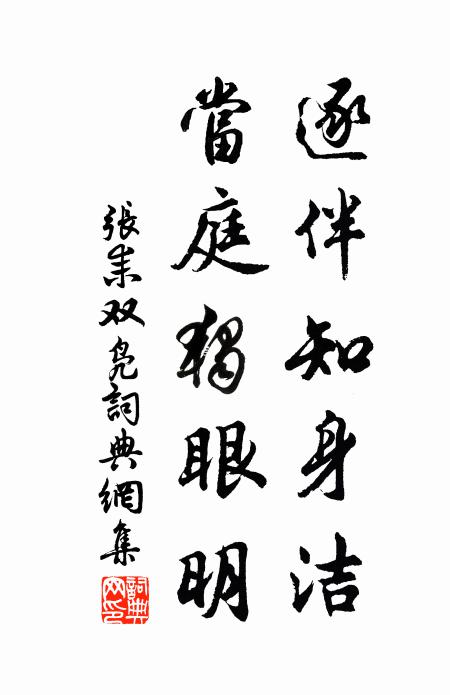 逐伴知身洁
當庭獨眼明
張耒双鳧詞典網集
詞典網印